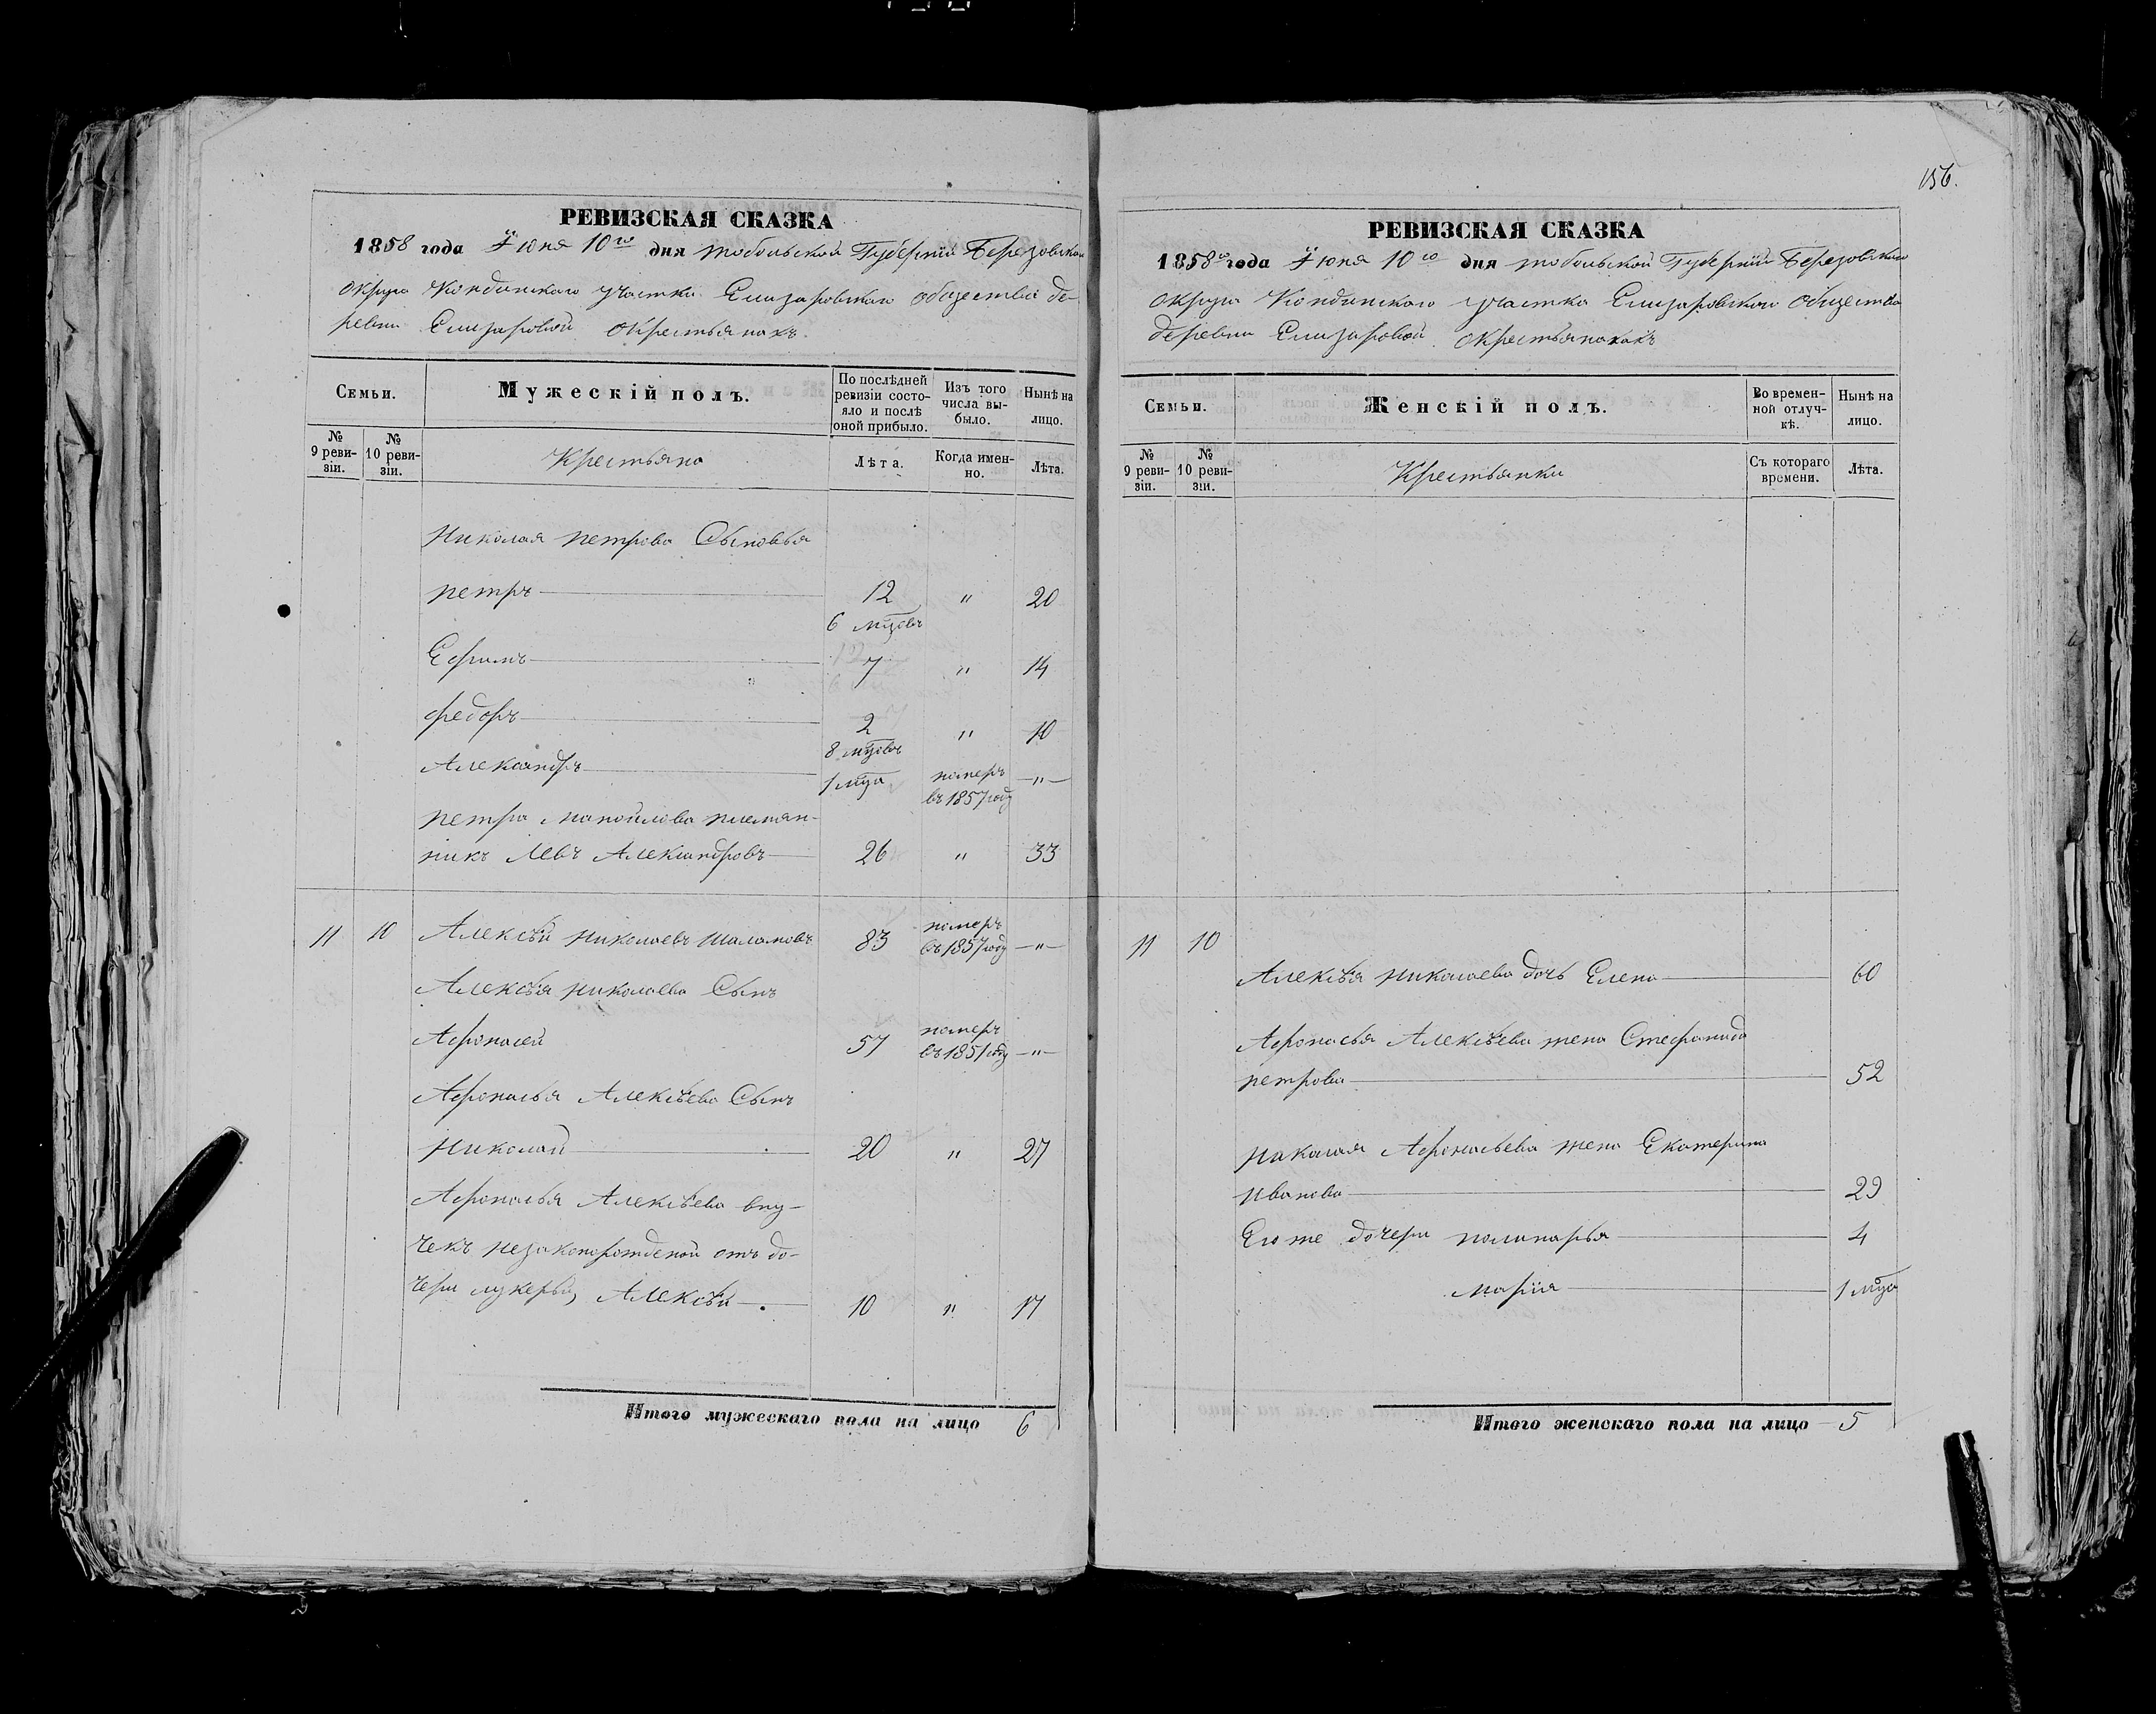 156.
РЕВИЗСКАЯ СКАЗКА
1858 года Іюня 10го дня тобольской Губерніи Березовскаго
округа Кондинскаго участка Елизаровскаго общества де-
ревни Елизаровой окрестьянахъ.
Семьи.
Мужескій полъ.
По послѣдней ревизіи состо-яло и послѣ оной прибыло.
Изъ того числа вы-было.
Нынѣ на лицо.
№ 9 реви-зіи.
№ 10 реви-зіи.
Крестьяне
Лѣта.
Когда имен-но.
Лѣта.
Николая петрова Сыновья
петръ 12 " 20
6 мцовъ
Ефимъ 7 " 14
федоръ 2 " 10
8 мцовъ
Александръ 1 мца померъ въ 1857 году —"—
петра манойлова племян-
никъ Левъ Александровъ 26 " 33
11 10 Алексѣй николаевъ шаламовъ 83 померъ въ 1857 году —"—
Алексѣя николаева Сынъ
Афонасей 57 померъ въ 1851 году —"—
Афонасья Алексѣева Сынъ
николай 20 " 27
Афонасья Алексѣева вну-
чекъ незаконорожденой отъ до-
чери лукерьи, Алексѣй 10 " 17
Итого мужескаго пола на лицо 6
РЕВИЗСКАЯ СКАЗКА
1858го года Іюня 10го дня тобольской Губерніи Березовскаго
округа Кондинскаго участка Елизаровскаго общества
деревни Елизаровой окрестьянкахъ
Семьи.
Женскій полъ.
Во времен-ной отлуч-кѣ.
Нынѣ на лицо.
№ 9 реви-зіи.
№ 10 реви-зіи.
Крестьянки
Съ котораго времени.
Лѣта.
11 10
Алексѣя николаева дочь Елена 60
Афонасья Алексѣева жена Стефанида
петрова 52
николая Афонасьева жена Екатерина
иванова 29
Егоже дочери 4
марія 1 мца
Итого женскаго пола на лицо 5